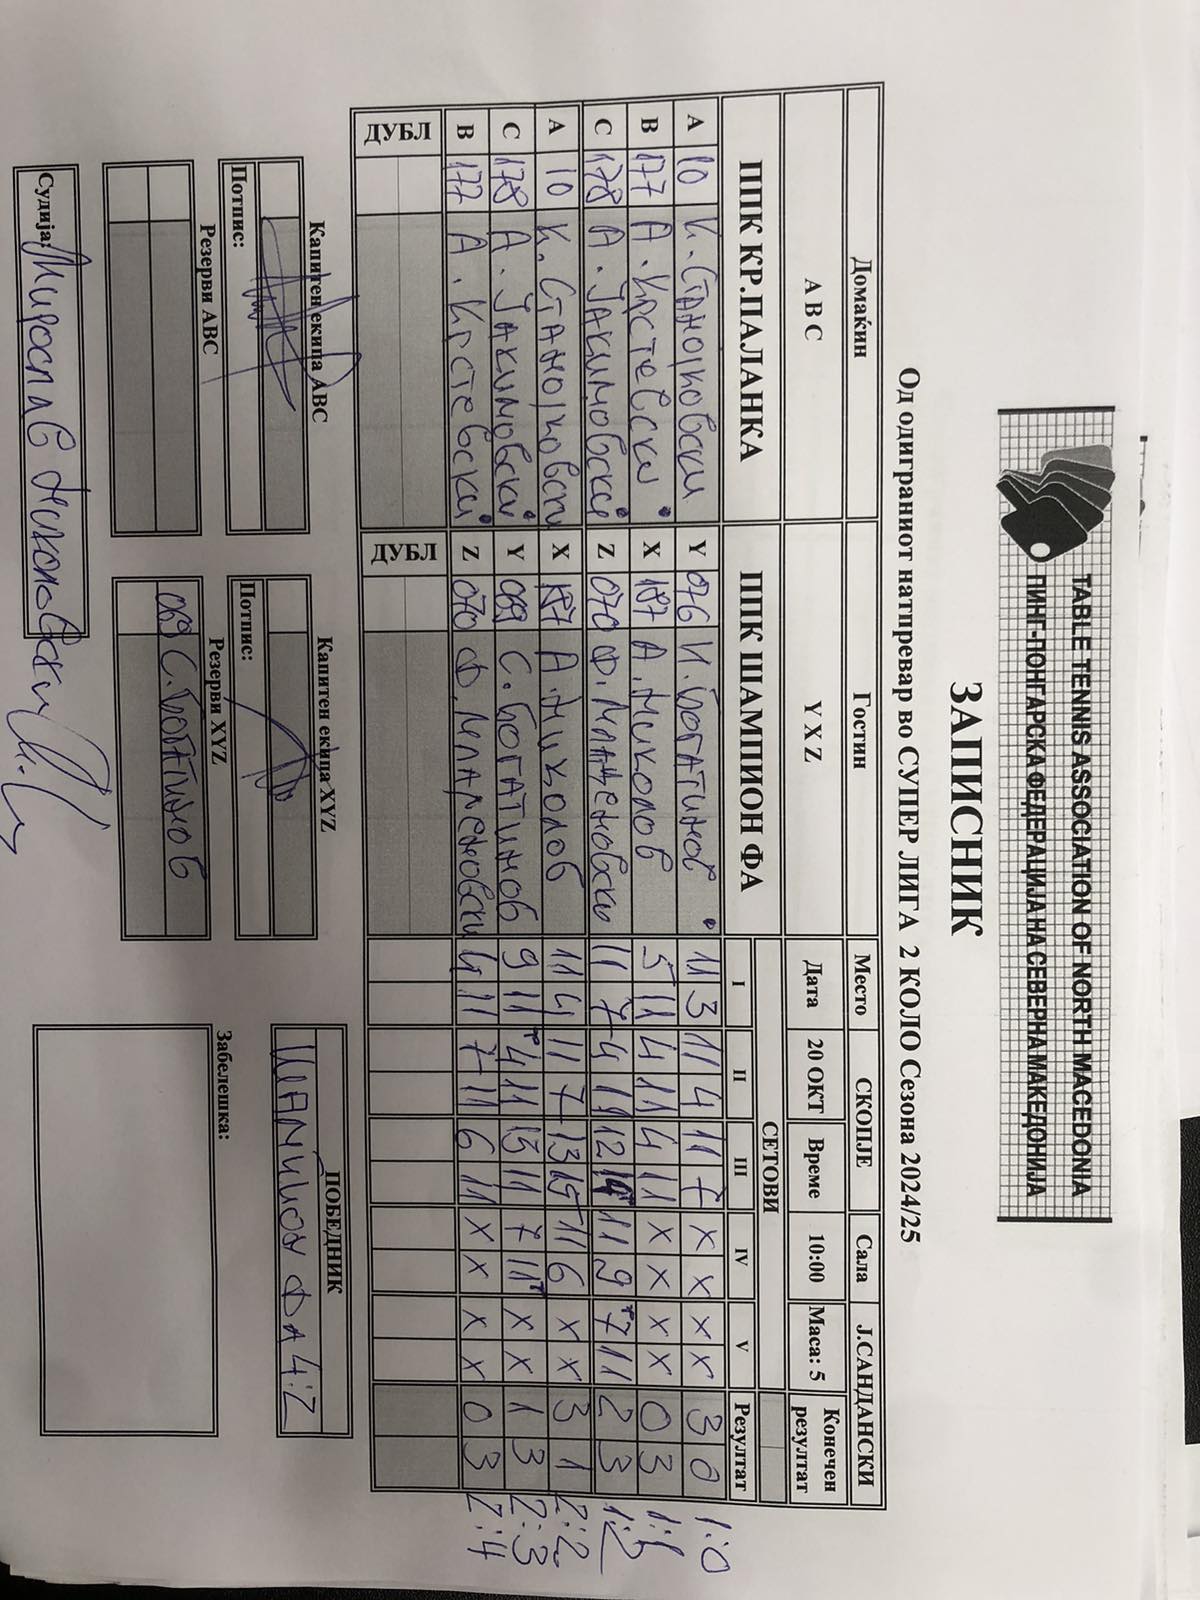 TABLE TENNIS ASSOCIATION OF NORTH MACEDONIA
ПИНГ-ПОНГАРСКА ФЕДЕРАЦИЈА НА СЕВЕРНА МАКЕДОНИЈА
ЗАПИСНИК
Од одиграниот натпревар во СУПЕР ЛИГА 2 КОЛО Сезона 2024/25
Домаќин Гостин Место СКОПЈЕ Сала Ј.САНДАНСКИ
A B C Y X Z Дата 20 ОКТ Време 10:00 Маса: 5 Конечен резултат
ППК КР.ПАЛАНКА ППК ШАМПИОН ФА СЕТОВИ
I II III IV V Резултат
A 10 К. Станојковски Y 076 И. Богатинов 11 3 11 4 11 7 X X X X 3 0 1:0
B 177 А. Крстевски X 187 А. Николов 5 11 4 11 4 11 X X X X 0 3 1:1
C 178 А. Јакимовски Z 070 Ф. Младеновски 11 7 4 11 12 14 11 9 7 11 2 3 1:2
A 10 К. Станојковски X 187 А. Николов 11 4 11 7 13 15 11 6 X X 3 1 2:2
C 178 А. Јакимовски Y 069 С. Богатинов 9 11 4 11 13 11 7 11 X X 1 3 2:3
B 177 А. Крстевски Z 070 Ф. Младеновски 4 11 7 11 6 11 X X X X 0 3 2:4
ДУБЛ ДУБЛ
Капитен екипа ABC Капитен екипа XYZ ПОБЕДНИК
Потпис: Потпис: ШАМПИОН ФА 4:2
Резерви ABC Резерви XYZ Забелешка:
069 С. БОГАТИНОВ
Судија: Мирослав Николовски